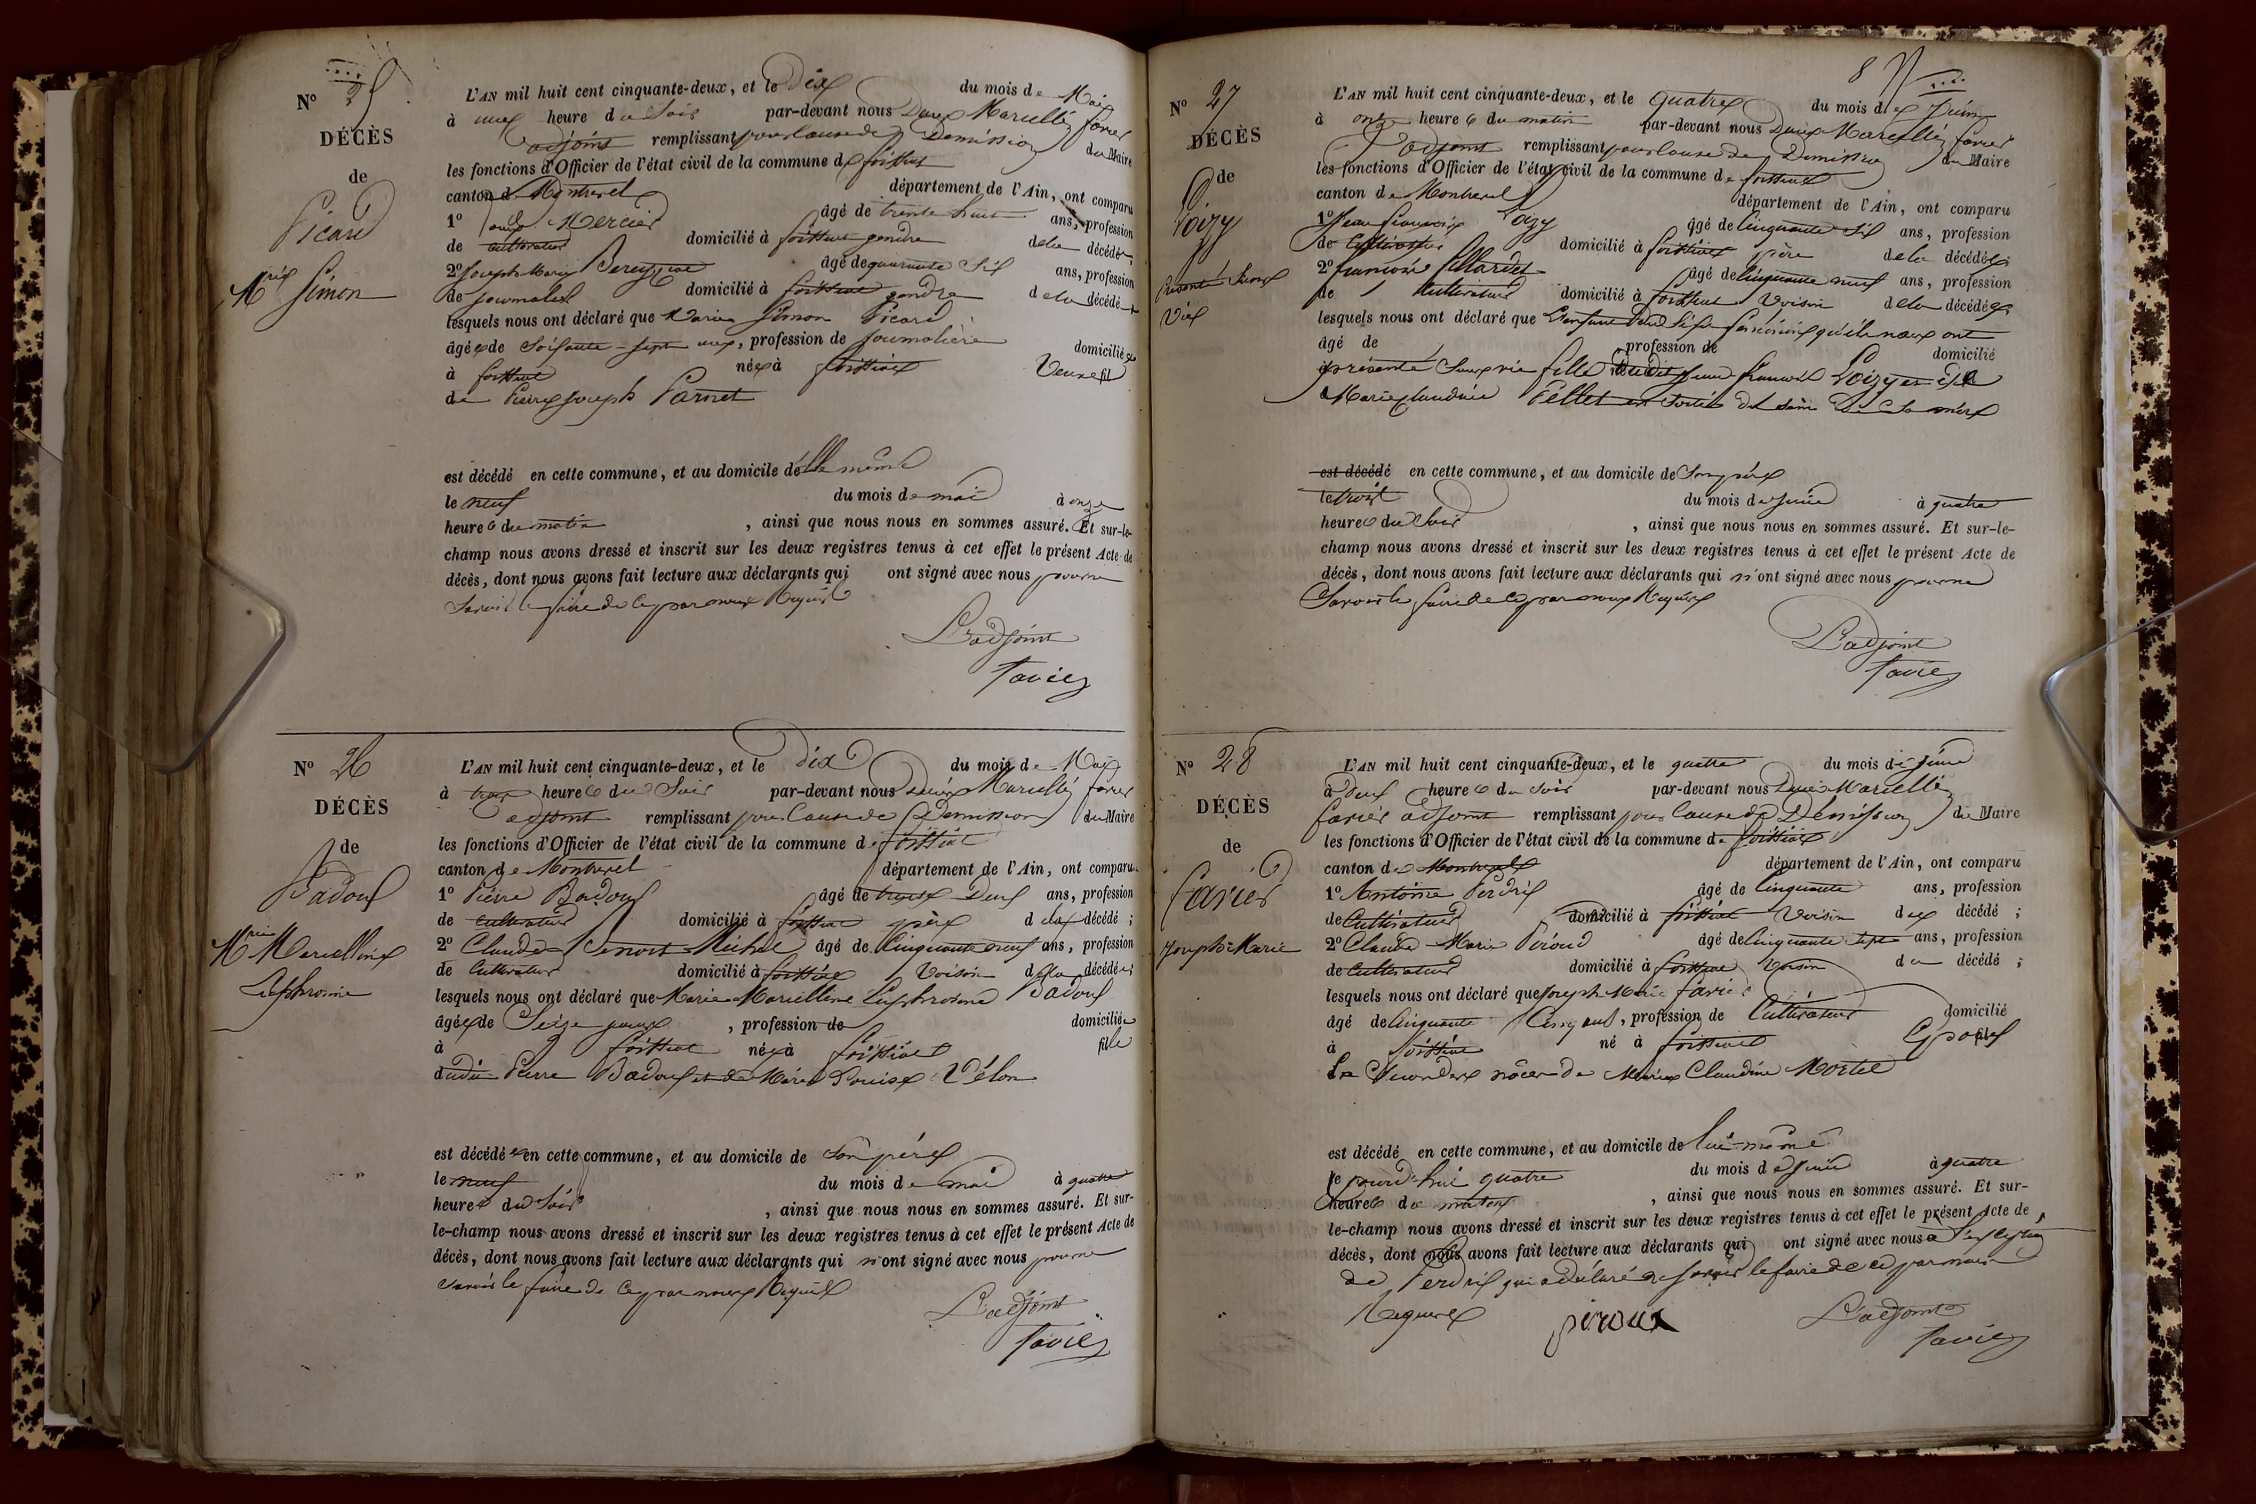 N° 25
DÉCÈS
de
Picard
Mrie Simon
L'AN mil huit cent cinquante-deux, et le Dix du mois de Mai
à une heure du Soir par-devant nous Marcellin favier
adjoint remplissant pour Cause de Démission du Maire
les fonctions d'Officier de l'état civil de la commune de foissiat
canton de Montrevel département de l'Ain, ont comparu
1° Mercier âgé de trente huit ans, profession
de cultivateur domicilié à foissiat gendre de la décédée;
2° Joseph Marie âgé de quarante Six ans, profession
de journalier domicilié à foissiat gendre de la décédée
lesquels nous ont déclaré que Marie Simon Picard
âgée de Soixante-sept ans, profession de Journalière domiciliée
à foissiat née à foissiat Veuve
de Pierre Joseph Parnet
est décédé en cette commune, et au domicile d'elle même
le neuf du mois de mai à onze
heures du matin, ainsi que nous nous en sommes assuré. Et sur-le-
champ nous avons dressé et inscrit sur les deux registres tenus à cet effet le présent Acte de
décès, dont nous avons fait lecture aux déclarants qui ont signé avec nous pour ne
Savoir le faire de ce par nous Requis
L'adjoint
favier
N° 26
DÉCÈS
de
Badoux
Mrie Marcelline
Euphrosine
L'AN mil huit cent cinquante-deux, et le dix du mois de Mai
à trois heures du Soir par-devant nous Marcellin favier
adjoint remplissant pour Cause de Démission du Maire
les fonctions d'Officier de l'état civil de la commune de foissiat
canton de Montrevel département de l'Ain, ont comparu
1° Pierre Badoux âgé de trente Deux ans, profession
de cultivateur domicilié à foissiat père de la décédé;
2° Claude Benoit Michel âgé de Cinquante neuf ans, profession
de Cultivateur domicilié à foissiat Voisin de la décédée;
lesquels nous ont déclaré que Marie Marcelline Euphrosine Badoux
âgée de Seize jours, profession de domiciliée
à foissiat née à foissiat fille
dudit Pierre Badoux et de Marie Louise Vélon
est décédée en cette commune, et au domicile de Son père
le neuf du mois de mai à quatre
heures du Soir, ainsi que nous nous en sommes assuré. Et sur-
le-champ nous avons dressé et inscrit sur les deux registres tenus à cet effet le présent Acte de
décès, dont nous avons fait lecture aux déclarants qui n'ont signé avec nous pour ne
savoir le faire de ce par nous Requis
L'adjoint
favier
8
N° 27
DÉCÈS
de
Loizy
Présenté Sans
Vie
L'AN mil huit cent cinquante-deux, et le quatre du mois de Juin
à onze heures du matin par-devant nous Marcellin favier
adjoint remplissant pour Cause de Démission du Maire
les fonctions d'Officier de l'état civil de la commune de foissiat
canton de Montrevel département de l'Ain, ont comparu
1° Jean François Loizy âgé de Cinquante Six ans, profession
de Cultivateur domicilié à foissiat père de la décédée;
2° âgé de Cinquante neuf ans, profession
de Cultivateur domicilié à foissiat Voisin de la décédée;
lesquels nous ont déclaré que L'enfant du Sexe féminin qu'ils nous ont
âgé de profession de domicilié
présenté Sans vie fille dudit Jean François Loizy et de
Marie Claudine Pellet est Sortie du sein de Sa mère
est décédé en cette commune, et au domicile de Son père
le trois du mois de Juin à quatre
heures du Soir, ainsi que nous nous en sommes assuré. Et sur-le-
champ nous avons dressé et inscrit sur les deux registres tenus à cet effet le présent Acte de
décès, dont nous avons fait lecture aux déclarants qui n'ont signé avec nous pour ne
Savoir le faire de ce par nous Requis
L'adjoint
favier
N° 28
DÉCÈS
de
favier
Joseph-Marie
L'AN mil huit cent cinquante-deux, et le quatre du mois de juin
à Deux heures du Soir par-devant nous Marcellin
favier adjoint remplissant pour Cause de Démission du Maire
les fonctions d'Officier de l'état civil de la commune de foissiat
canton de Montrevel département de l'Ain, ont comparu
1° Antoine Perdrix âgé de Cinquante ans, profession
de Cultivateur domicilié à foissiat Voisin du décédé;
2° Claude Marie Péroud âgé de Cinquante Sept ans, profession
de Cultivateur domicilié à foissiat Voisin du décédé;
lesquels nous ont déclaré que Joseph Marie favier
âgé de Cinquante Cinq ans, profession de Cultivateur domicilié
à foissiat né à foissiat Epoux
En Secondes noces de Marie Claudine Mortel
est décédé en cette commune, et au domicile de lui-même
le jourd'hui quatre du mois de Juin à quatre
heures du matin, ainsi que nous nous en sommes assuré. Et sur-
le-champ nous avons dressé et inscrit sur les deux registres tenus à cet effet le présent Acte de
décès, dont nous avons fait lecture aux déclarants qui ont signé avec nous à L'exception
de Perdrix qui a déclaré ne Savoir le faire de ce par nous
Requis
péroux
L'adjoint
favier